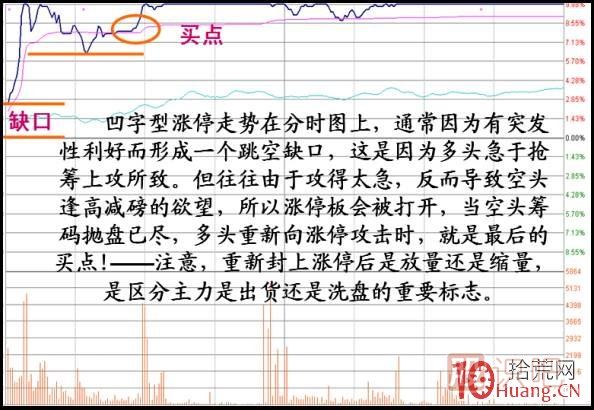 9.98%
8.55%
买点
7.13%
5.70%
4.28%
2.85%
缺口
1.43%
凹字型涨停走势在分时图上，通常因为有突发
0.00%
性利好而形成一个跳空缺口，这是因为多头急于抢
1.43%
筹上攻所致。但往往由于攻得太急，反而导致空头
2.85%
逢高减磅的欲望，所以涨停板会被打开，当空头筹
4.28%
5.70%
码抛盘已尽，多头重新向涨停攻击时，就是最后的
7.13%
买点！——注意，重新封上涨停后是放量还是缩量，
8.55%
5864
是区分主力是出货还是洗盘的重要标志。
5131
4398
3665
2932
2199
1466
10 拾荒网
Huang.CN